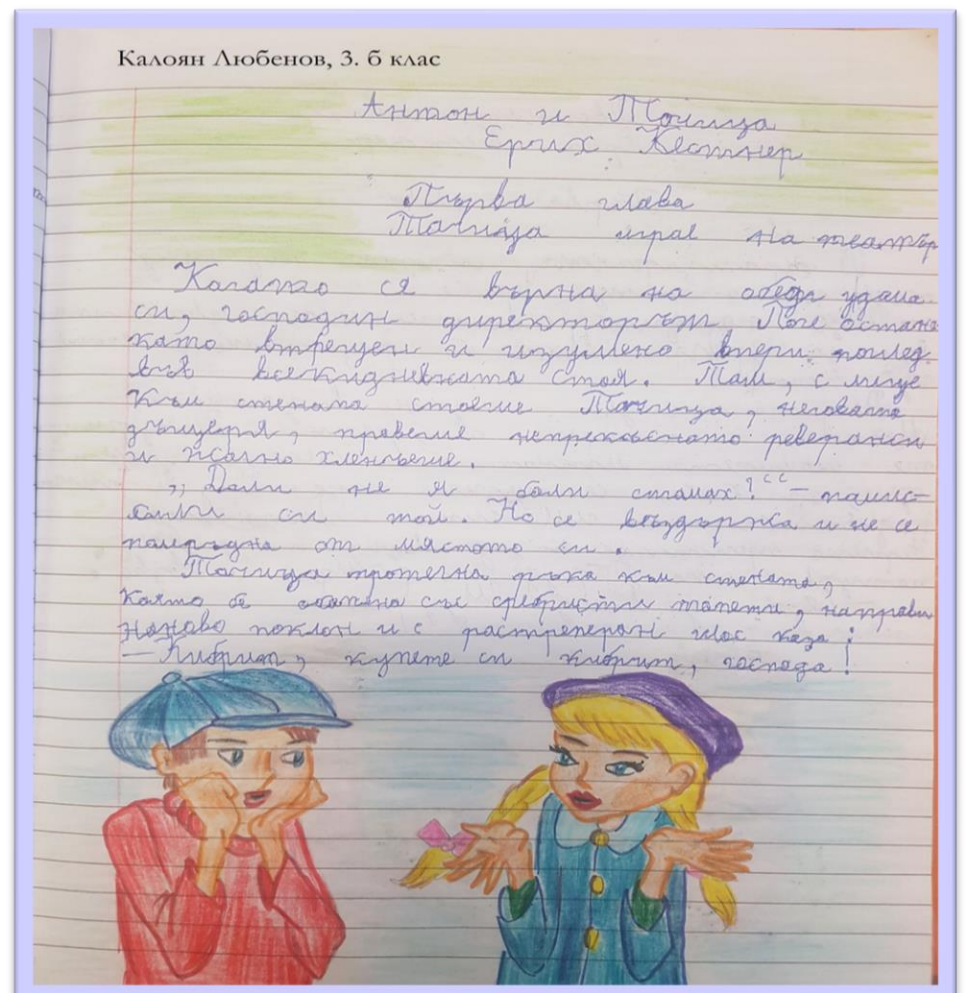 Калоян Любенов, 3. б клас
Антон и Точица
Ерих Кестнер
Първа глава
Точица играе на театър
Когато ся върна на обед удома
си, господин директорът Поге остана
като втрещен и изумено впери поглед
във всекидневната стоя. Там, с лице
към стената стоеше Точица, неговата
дъщеря, правеше непрекъснато реверанси
и жално хленчеше.
„Дали не я боли стомах?“ – помис-
ли си той. Но се въздържа и не се
помръдна от мястото си.
Точица протегна ръка към стената,
която бе облепена със сребристи тапети, направи
наново поклон и с разтреперан глас каза:
– Кибрит, купете си кибрит, господа!